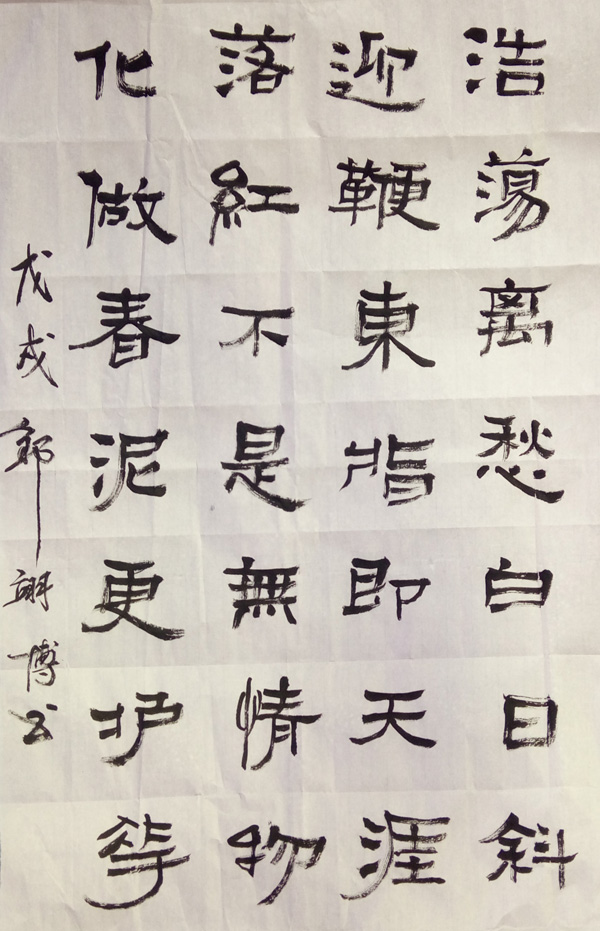 浩蕩离愁白日斜
迎鞭東指即天涯
落紅不是無情物
化做春泥更护華
戊戌郭翊博书